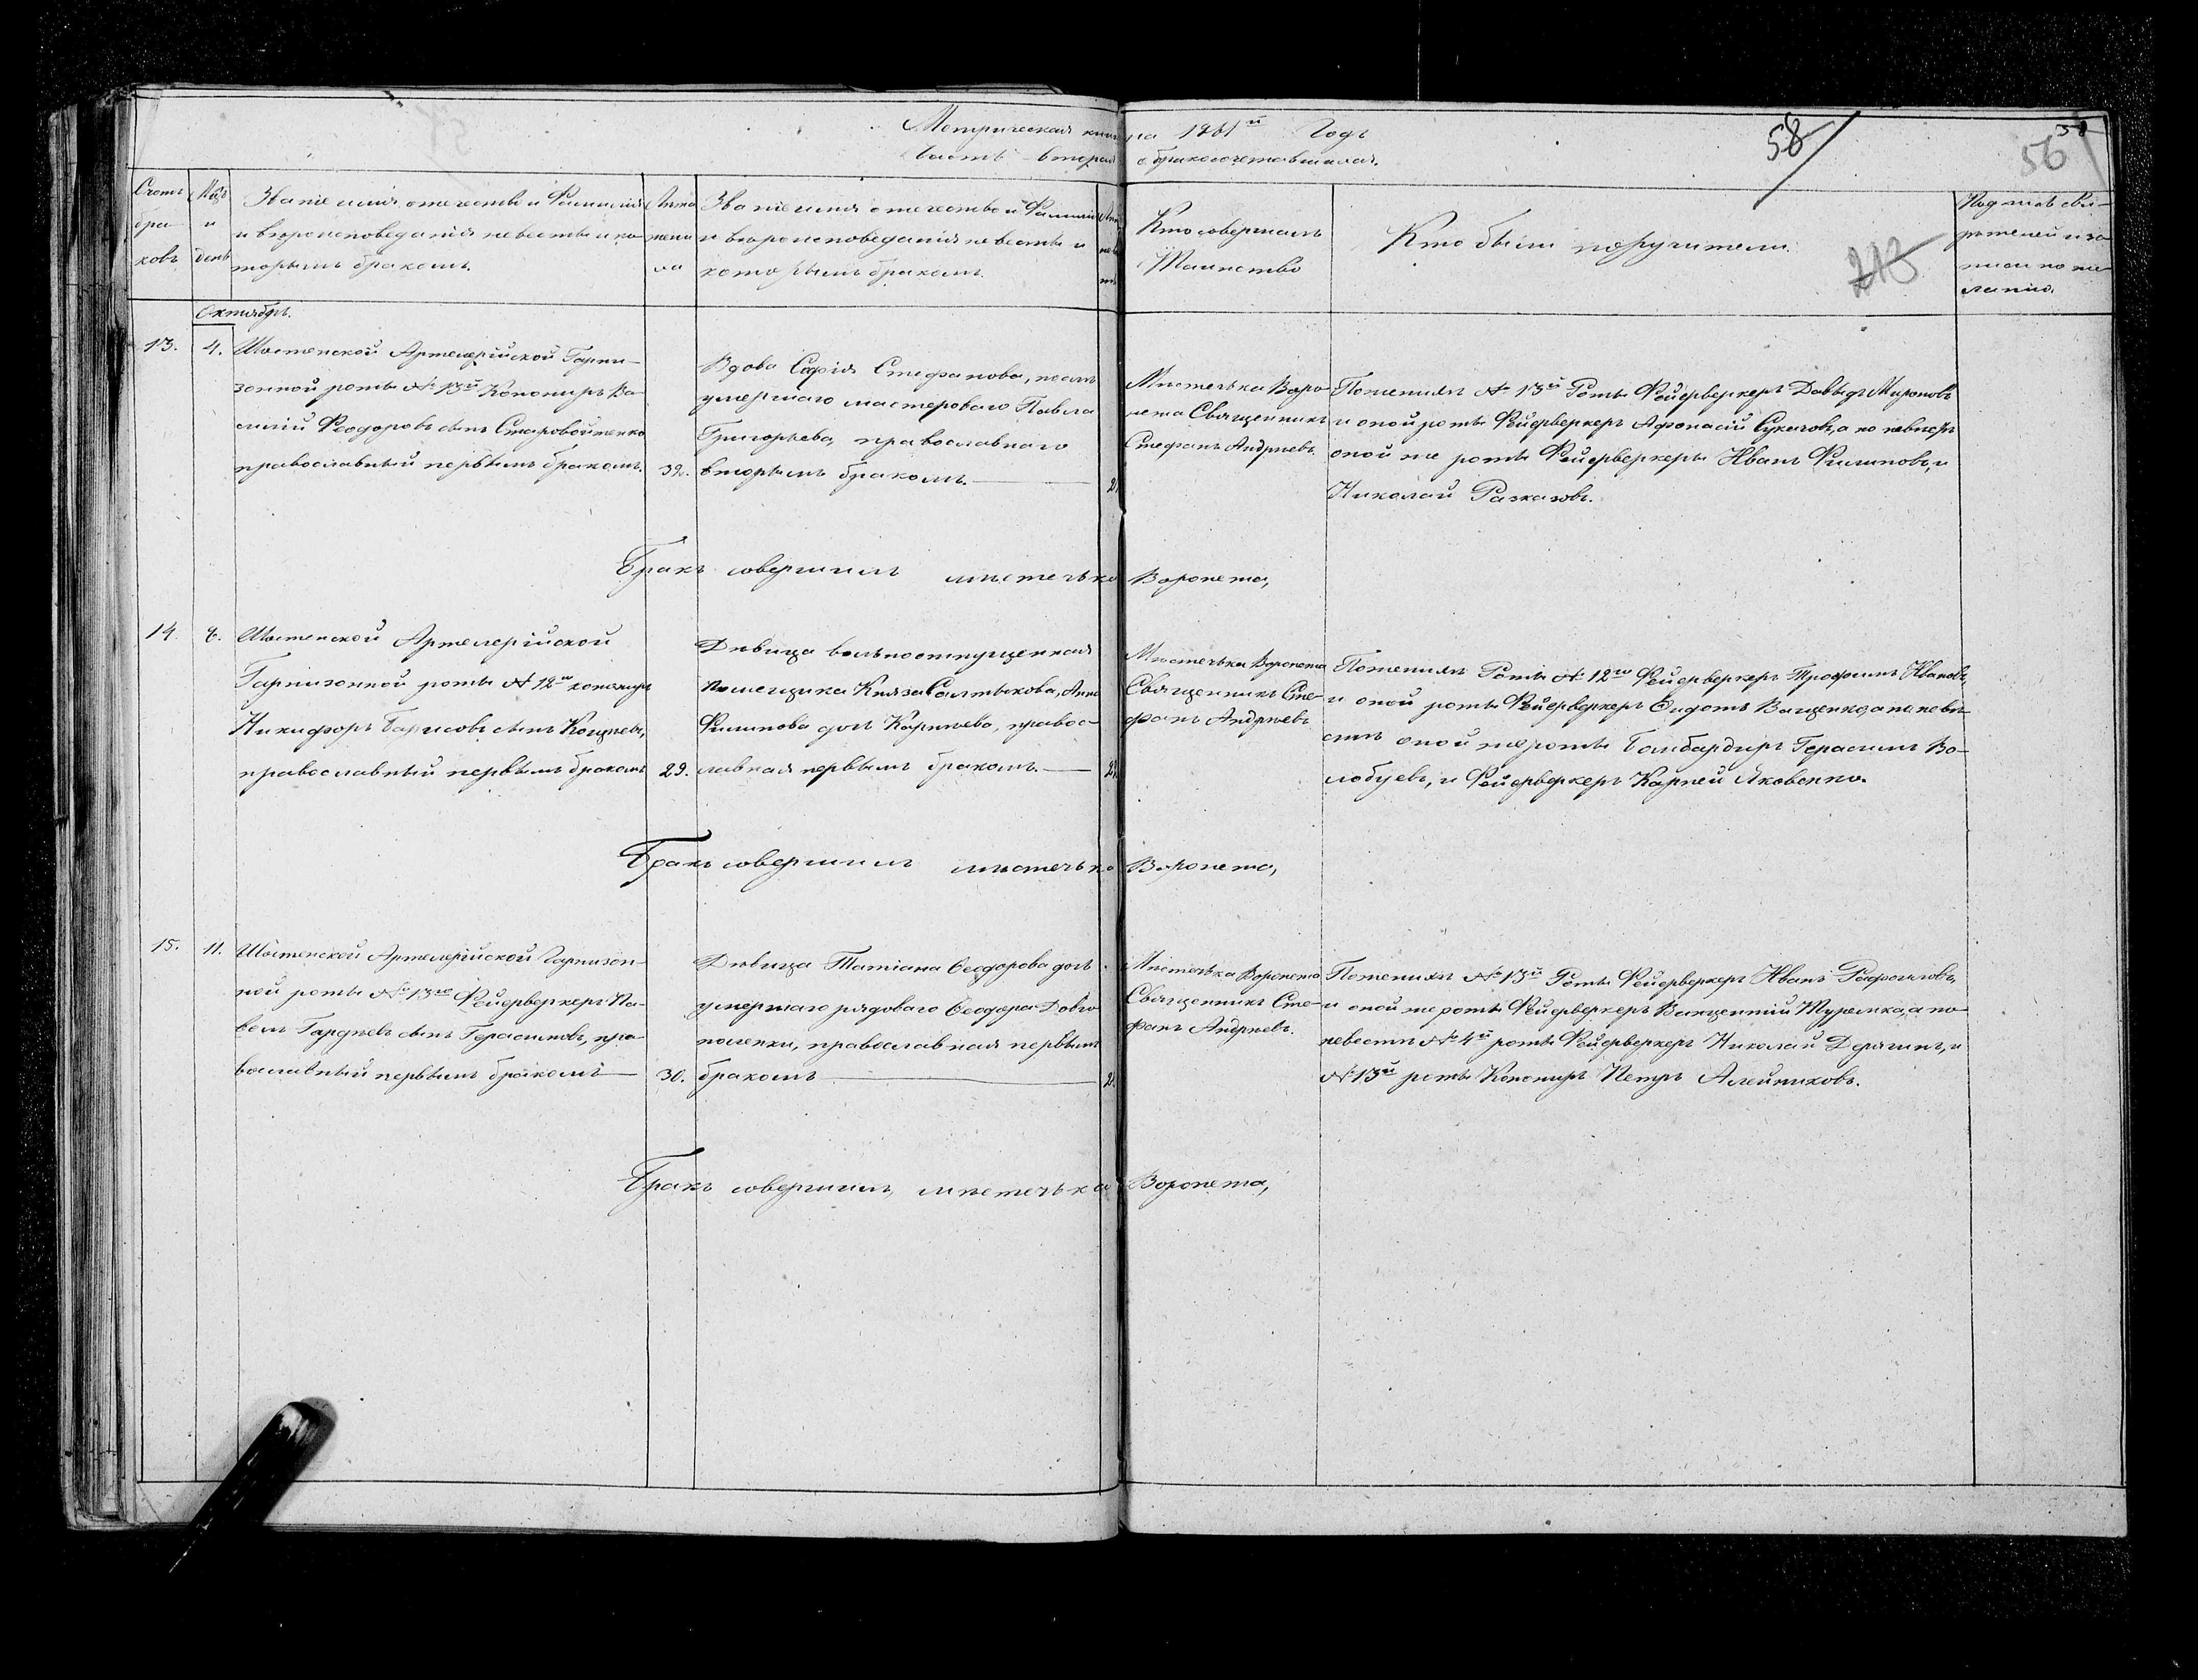 Метрическая книга на 1861й Годъ
часть вторая о бракосочетавшихся.
58
56
213
Счетъ бра-ковъ
Мѣсяцъ и день
Званіе имя отечество и Фамилія
и вѣроисповеданія невесты и ко-
торымъ бракомъ.
Лѣта жени-ха
Званіе имя отечество и Фамилія
и вѣроисповеданія невесты и
которымъ бракомъ.
Кто совершалъ
Таинство
Кто были поручители.
Подпись сви-
рѣтелей и за-
писи по же-
ланію.
Октябрь.
13.
4.
Шостенской Артелерійской Гарни-
зонной роты № 13й Кононирь Ва-
силій Феодоровъ сынъ Старовойтенко
православный первымъ бракомъ.
32.
Вдова Софія Стефанова, послѣ
умершаго мастероваго Павла
Григорьева, православнаго
вторымъ бракомъ.
Мѣстечка Воро-
нежа Священникъ
Стефанъ Андріевъ
Поженихѣ № 13й Роты Фейерверкеръ Давыдъ Мироновъ
и оной роты Фейерверкеръ Афонасій Сукачовъ, а по невѣстѣ
оной же роты Фейерверкеры Иванъ Филиповъ, и
Николай Разказовъ.
Бракъ совершилъ мѣстечька Воронежа,
14.
8.
Шостенской Артелерійской
Гарнизонной роты № 12й кононирь
Никифоръ Барисовъ сынъ Концевъ,
православный первымъ бракомъ
29.
Дѣвица вольноотпущенная
помещика Князя Салтыкова, Анна
Филипова дочь Карпѣева, правос-
лавная первымъ бракомъ.
Мѣстечька Воронежа
Священникъ Сте-
фанъ Андріевъ
Поженихѣ Роты № 12го Фейерверкеръ Трофимъ Ивановъ,
и оной роты Фейерверкеръ Федотъ Ващенко, а по невѣ-
стѣ оной же роты Бомбардиръ Герасимъ Во-
лобуевъ, и Фейерверкеръ Карпей Яковенко.
Бракъ совершилъ мѣстечька Воронежа,
15.
11.
Шостенской Артелерійской Гарнизон-
ной роты № 13го Фейерверкеръ Па-
велъ Гардѣевъ сынъ Герасимовъ, пра-
вославный первымъ бракомъ
30.
Дѣвица Татіана Феодорова дочь
умершаго рядоваго Феодора Довго-
поленки, православная первымъ
бракомъ
Мѣстечька Воронежа
Священникъ Сте-
фанъ Андріевъ.
Поженихѣ № 13й Роты Фейерверкеръ Иванъ Рафаиловъ,
и оной же роты Фейерверкеръ Викентій Туремка, а по
невестѣ № 4й роты Фейерверкеръ Николай Дерягинъ, и
№ 13й роты Кононирь Петръ Алейниковъ.
Бракъ совершилъ мѣстечька Воронежа,